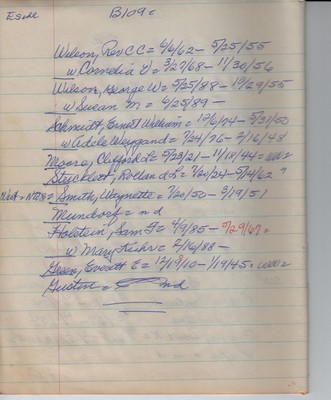 E side B109c
Wilson, Rev C C = 6/6/62 - 5/25/55
w Cornelia V = 3/27/68 - 11/30/56
Wilson, George W = 5/25/88 - 10/29/55
w Susan M = 4/25/89 -
Schmidt, Ernest William = 12/6/74 - 5/31/50
w Adele Weygand = 7/24/76 - 2/16/48
Moore, Clifford L = 5/23/21 - 11/18/44 = WW 2
Stricklett, Rolland S = 1/20/24 - 5/14/62 ?
Smith, Waynette = 7/20/50 - 3/19/51
Mundorf = nd
Holstein, Sam F = 4/9/85 - 5/29/67 =
w Mary = 2/16/88 -
Green, Everett E = 12/19/10 - 1/19/45 = WW 2
nd